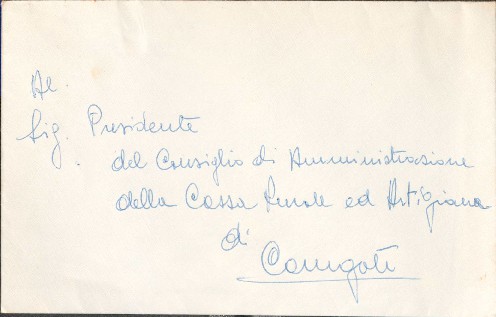 Al.
Sig. Presidente
del Consiglio di Amministrazione
della Cassa Rurale ed Artigiana
di